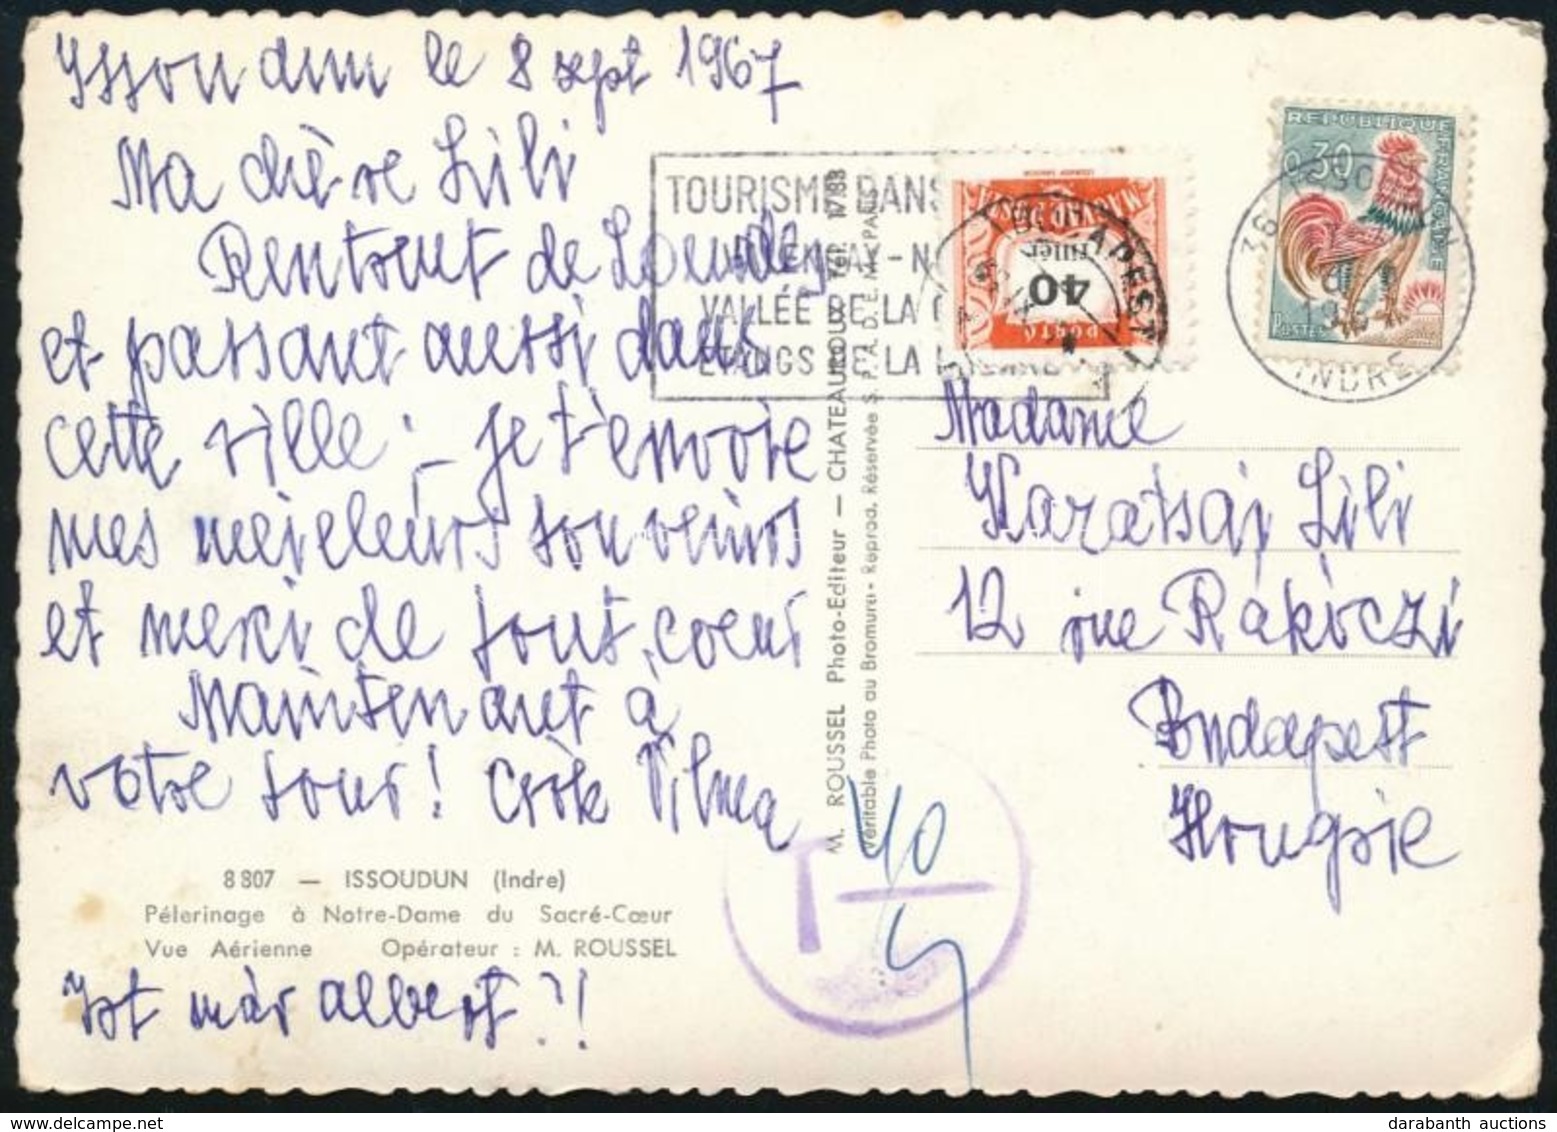 Issoudun le 8 sept 1967
Ma chère Lili
Rentrant de Lourdes
et passant aussi dans
cette ville - je t'envoie
mes meileurs souvenirs
et merci de tout coeur
Maintenant à
votre tour! Vilma
8807 — ISSOUDUN (Indre)
Pélerinage à Notre-Dame du Sacré-Cœur
Vue Aérienne Opérateur : M. ROUSSEL
már albert?!
M. ROUSSEL Photo-Editeur — CHATEAUROUX Tél. 1788
Véritable Photo au Bromure - Reprod. Réservée S. P. A. D. E. M. PARIS
TOURISME DANS
VALENÇAY - N
VALLÉE DE LA
ETANGS DE LA
MAGYAR POSTA
40
fillér
PORTÓ
BUDAPEST
RÉPUBLIQUE FRANÇAISE
0,30
POSTES
36 ISSOUDUN
INDRE
Madame
Karatsaj Lili
12 rue Rákóczi
Budapest
Hongrie
T
40
darabanth auctions